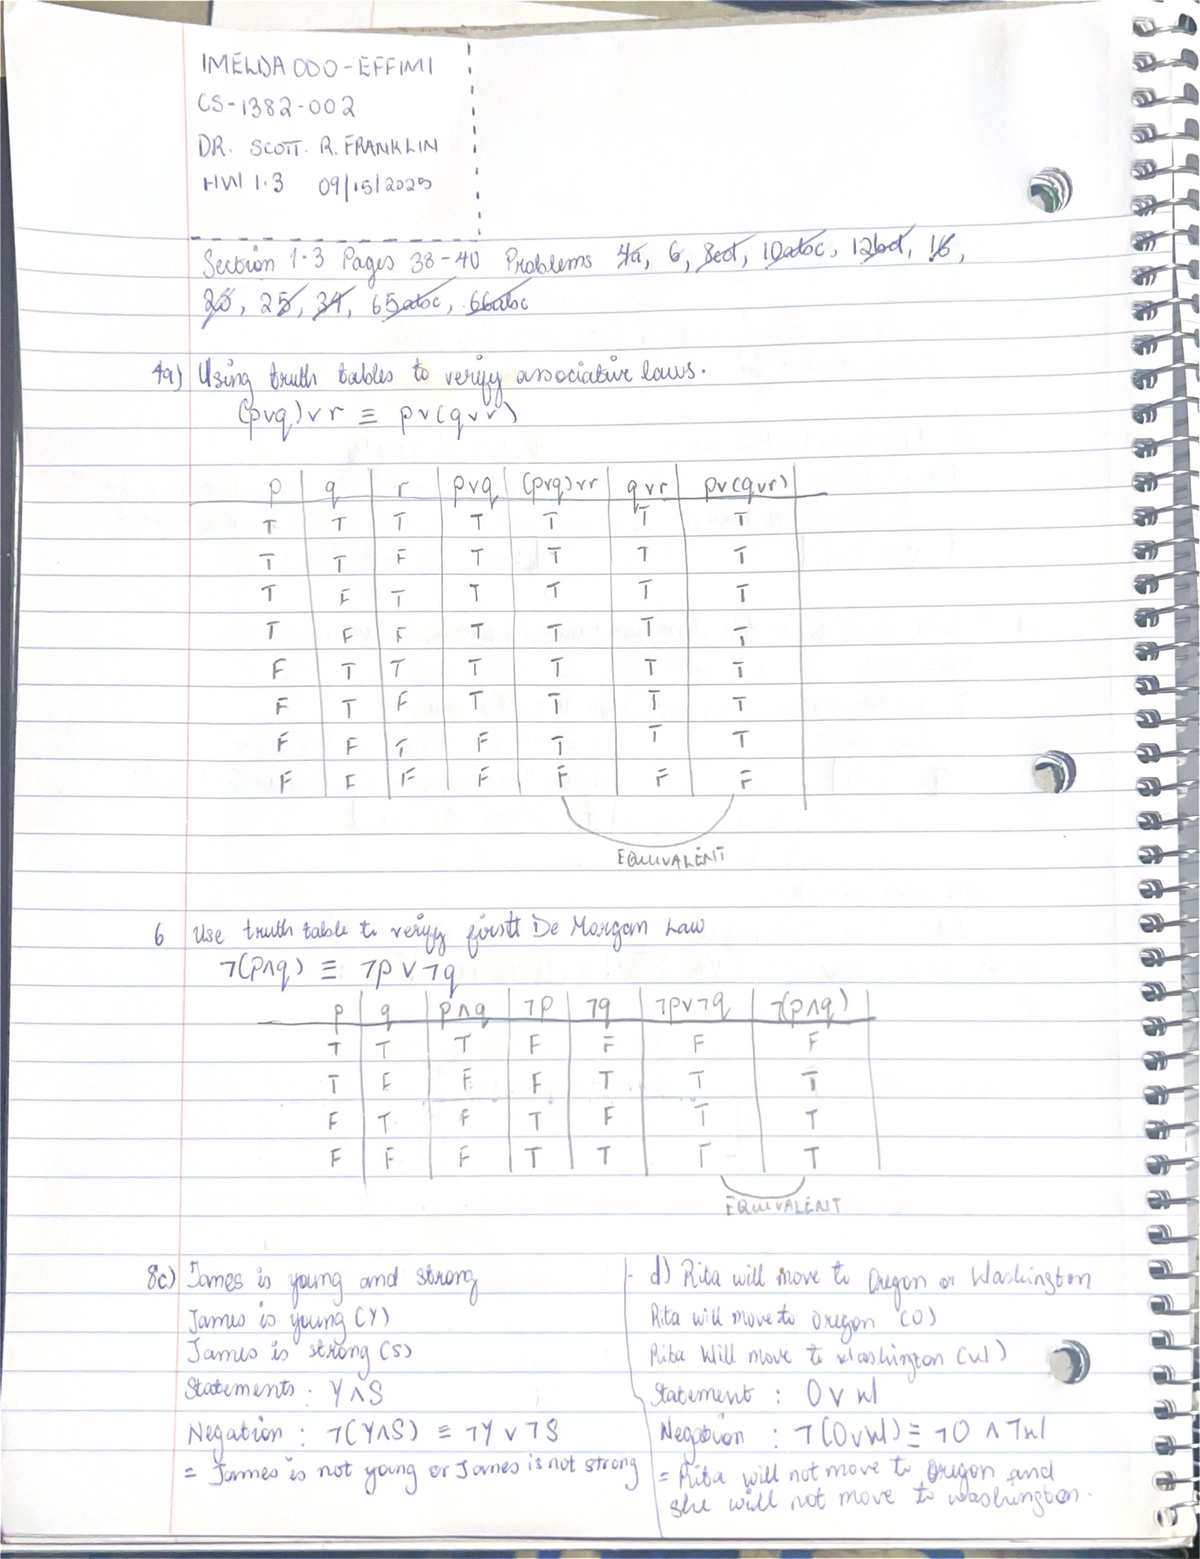 IMELDA ODO-EFFIMI
CS-1382-002
DR. SCOTT. R. FRANKLIN
HW 1.3 09/15/2025
Section 1.3 Pages 38-40 Problems 4a, 6, 8cd, 10abc, 12bd, 16,
25, 34, 65abc, 66abc
4a) Using truth tables to verify associative laws.
(p∨q)∨r ≡ p∨(q∨r)
p q r p∨q (p∨q)∨r q∨r p∨(q∨r)
T T T T T T T
T T F T T T T
T F T T T T T
T F F T T T T
F T T T T T T
F T F T T T T
F F T F T T T
F F F F F F F
EQUIVALENT
6 Use truth table to verify firstt De Morgan Law
¬(p∧q) ≡ ¬p ∨ ¬q
p q p∧q ¬p ¬q ¬p∨¬q ¬(p∧q)
T T T F F F F
T F F F T T T
F T F T F T T
F F F T T T T
EQUIVALENT
8c) James is young and strong
James is young (Y)
James is strong (S)
Statements . Y∧S
Negation : ¬(Y∧S) ≡ ¬Y ∨ ¬S
= James is not young or James is not strong
d) Rita will move to Oregon or Washington
Rita will move to oregon (O)
Rita Will move to Washington (W)
Statement : O ∨ W
Negation : ¬(O∨W) ≡ ¬O ∧ ¬W
= Rita will not move to Oregon and
she will not move to washington.